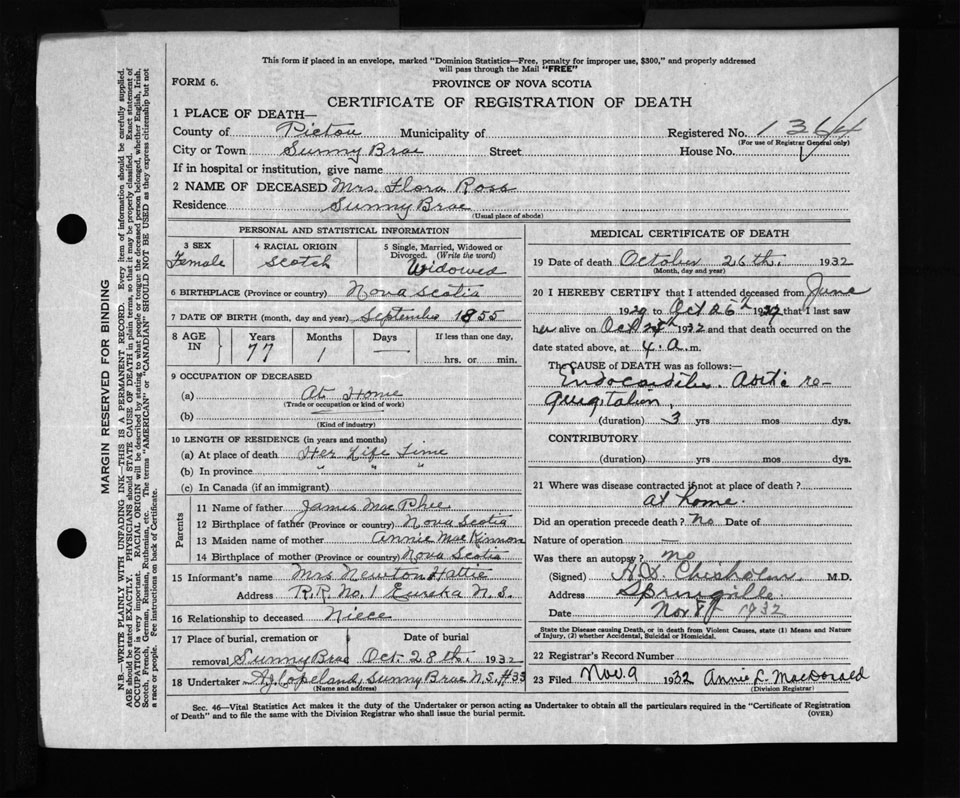 This form if placed in an envelope, marked "Dominion Statistics—Free, penalty for improper use, $300," and properly addressed
will pass through the Mail "FREE"
FORM 6.
PROVINCE OF NOVA SCOTIA
CERTIFICATE OF REGISTRATION OF DEATH
1 PLACE OF DEATH—
County of Pictou Municipality of Registered No. 1364
(For use of Registrar General only)
City or Town Sunny Brae Street House No.
If in hospital or institution, give name
2 NAME OF DECEASED Mrs. Flora Ross
Residence Sunny Brae
(Usual place of abode)
PERSONAL AND STATISTICAL INFORMATION
3 SEX Female
4 RACIAL ORIGIN Scotch
5 Single, Married, Widowed or Divorced. (Write the word) Widowed
6 BIRTHPLACE (Province or country) Nova Scotia
7 DATE OF BIRTH (month, day and year) September 1855
8 AGE IN Years 77 Months 1 Days — If less than one day, hrs. or min.
9 OCCUPATION OF DECEASED
(a) At Home
(Trade or occupation or kind of work)
(b)
(Kind of industry)
10 LENGTH OF RESIDENCE (in years and months)
(a) At place of death Her Life Time
(b) In province " " "
(c) In Canada (if an immigrant)
Parents
11 Name of father James MacPhee
12 Birthplace of father (Province or country) Nova Scotia
13 Maiden name of mother Annie MacKinnon
14 Birthplace of mother (Province or country) Nova Scotia
15 Informant's name Mrs Newton Hattie
Address R.R. No. 1 Eureka N.S.
16 Relationship to deceased Niece
17 Place of burial, cremation or Date of burial
removal Sunny Brae Oct. 28th. 1932
18 Undertaker A.J. Copeland, Sunny Brae N.S. #33
(Name and address)
MEDICAL CERTIFICATE OF DEATH
19 Date of death October 26th. 1932
(Month, day and year)
20 I HEREBY CERTIFY that I attended deceased from June
1929 to Oct 26th 1932 that I last saw
her alive on Oct 1932 and that death occurred on
date stated above, at 4. a. m.
The CAUSE of DEATH was as follows:—
Endocarditis. Aortic re-
gurgitation.
(duration) 3 yrs mos dys.
CONTRIBUTORY
(duration) yrs mos dys.
21 Where was disease contracted if not at place of death?
at home.
Did an operation precede death? No Date of
Nature of operation —
Was there an autopsy? no
(Signed) Chisholm M.D.
Address Springville
Date Nov 8th 1932
State the Disease causing Death, or in death from Violent Causes, state (1) Means and Nature
of Injury, (2) whether Accidental, Suicidal or Homicidal.
22 Registrar's Record Number
23 Filed Nov. 9 1932 Annie L. MacDonald
(Division Registrar)
Sec. 46—Vital Statistics Act makes it the duty of the Undertaker or person acting as Undertaker to obtain all the particulars required in the "Certificate of Registration
of Death" and to file the same with the Division Registrar who shall issue the burial permit.
(OVER)
MARGIN RESERVED FOR BINDING
N.B.—WRITE PLAINLY WITH UNFADING INK—THIS IS A PERMANENT RECORD. Every item of information should be carefully supplied.
AGE should be stated EXACTLY. PHYSICIANS should STATE CAUSE OF DEATH in plain terms, so that it may be properly classified. Exact statement of
OCCUPATION is very important. RACIAL ORIGIN will be described by stating to what people or tongue the deceased person belonged, whether English, Irish,
Scotch, French, German, Russian, Ruthenian, etc. The terms "AMERICAN" or "CANADIAN" SHOULD NOT BE USED as they express citizenship but not
a race or people. See instructions on back of Certificate.